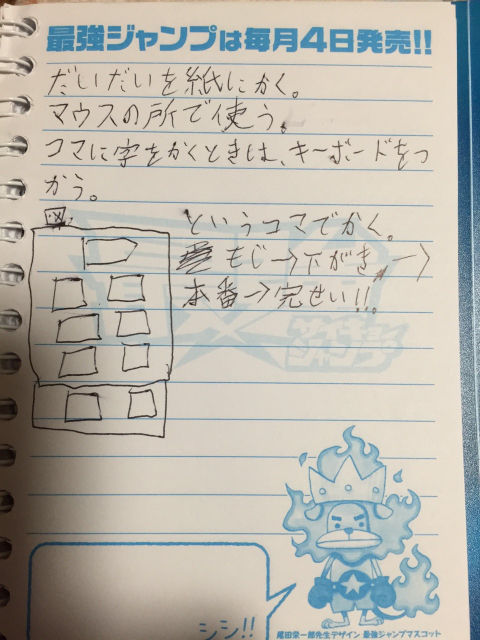 最強ジャンプは毎月4日発売!!
だいだいを紙にかく。
マウスの所で使う。
コマに字をかくときは、キーボードをつ
かう。
図 というコマでかく。
もじ→下がき→
本番→完せい!!
シシ!!
尾田栄一郎先生デザイン 最強ジャンプマスコット